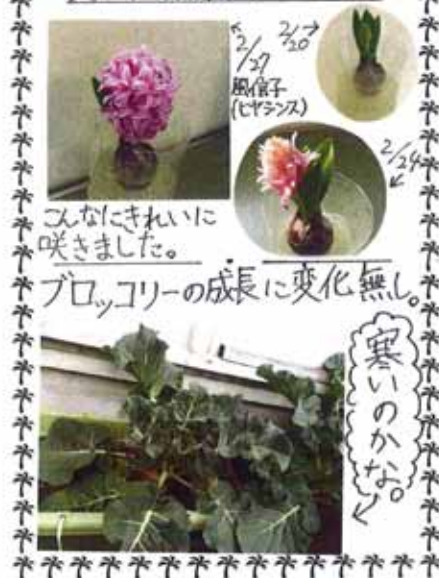 2/27
風信子
(ヒヤシンス)
2/20
2/24
こんなにきれいに
咲きました。
ブロッコリーの成長に変化無し。
寒いのかな。